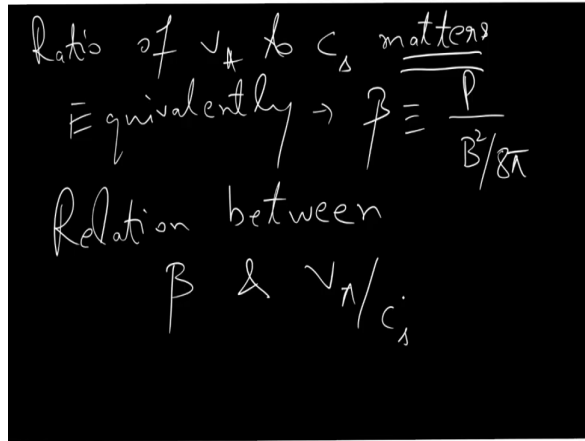 Ratio of v_A to c_s matters
Equivalently → β ≡ P / B²/8π
Relation between
β & v_A/c_s